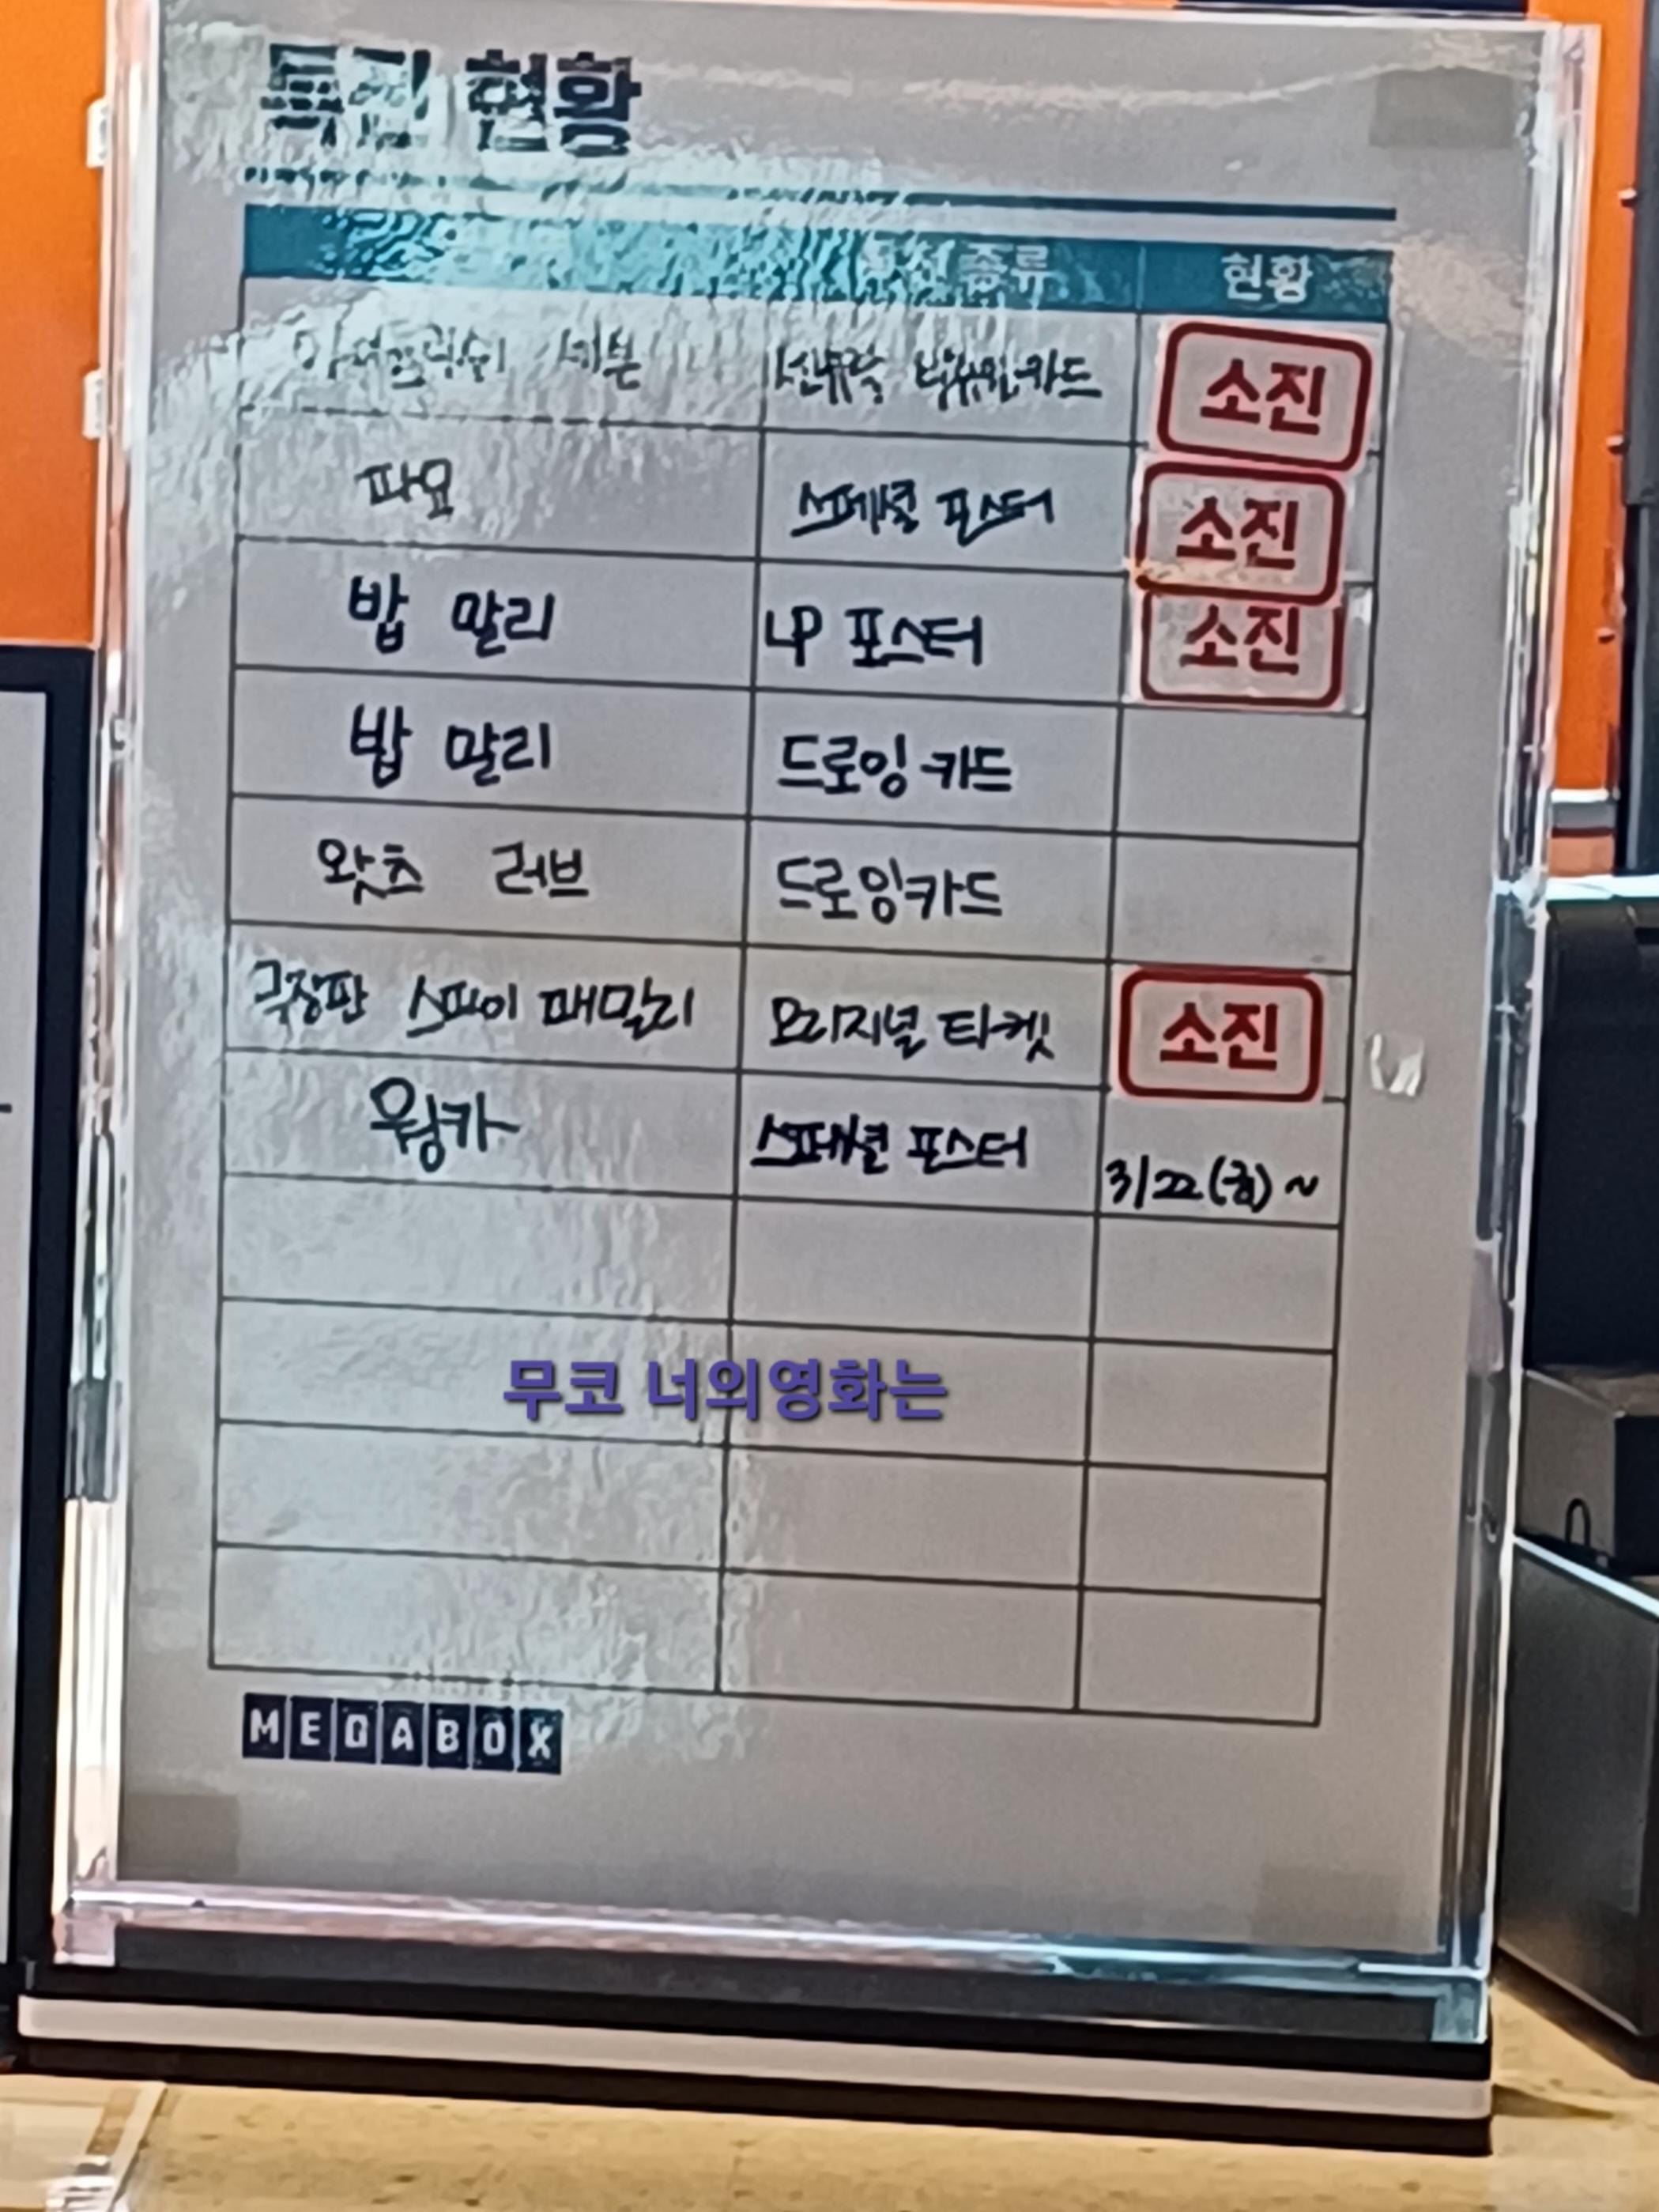 특전 현황
종류 현황
아이돌리쉬 세븐 카드 소진
파묘 스페셜 포스터 소진
밥 말리 LP 포스터 소진
밥 말리 드로잉 카드
왓츠 러브 드로잉카드
극장판 스파이 패밀리 오리지널 티켓 소진
웡카 스페셜 포스터 3/22(금)~
무코 너의영화는
MEGABOX